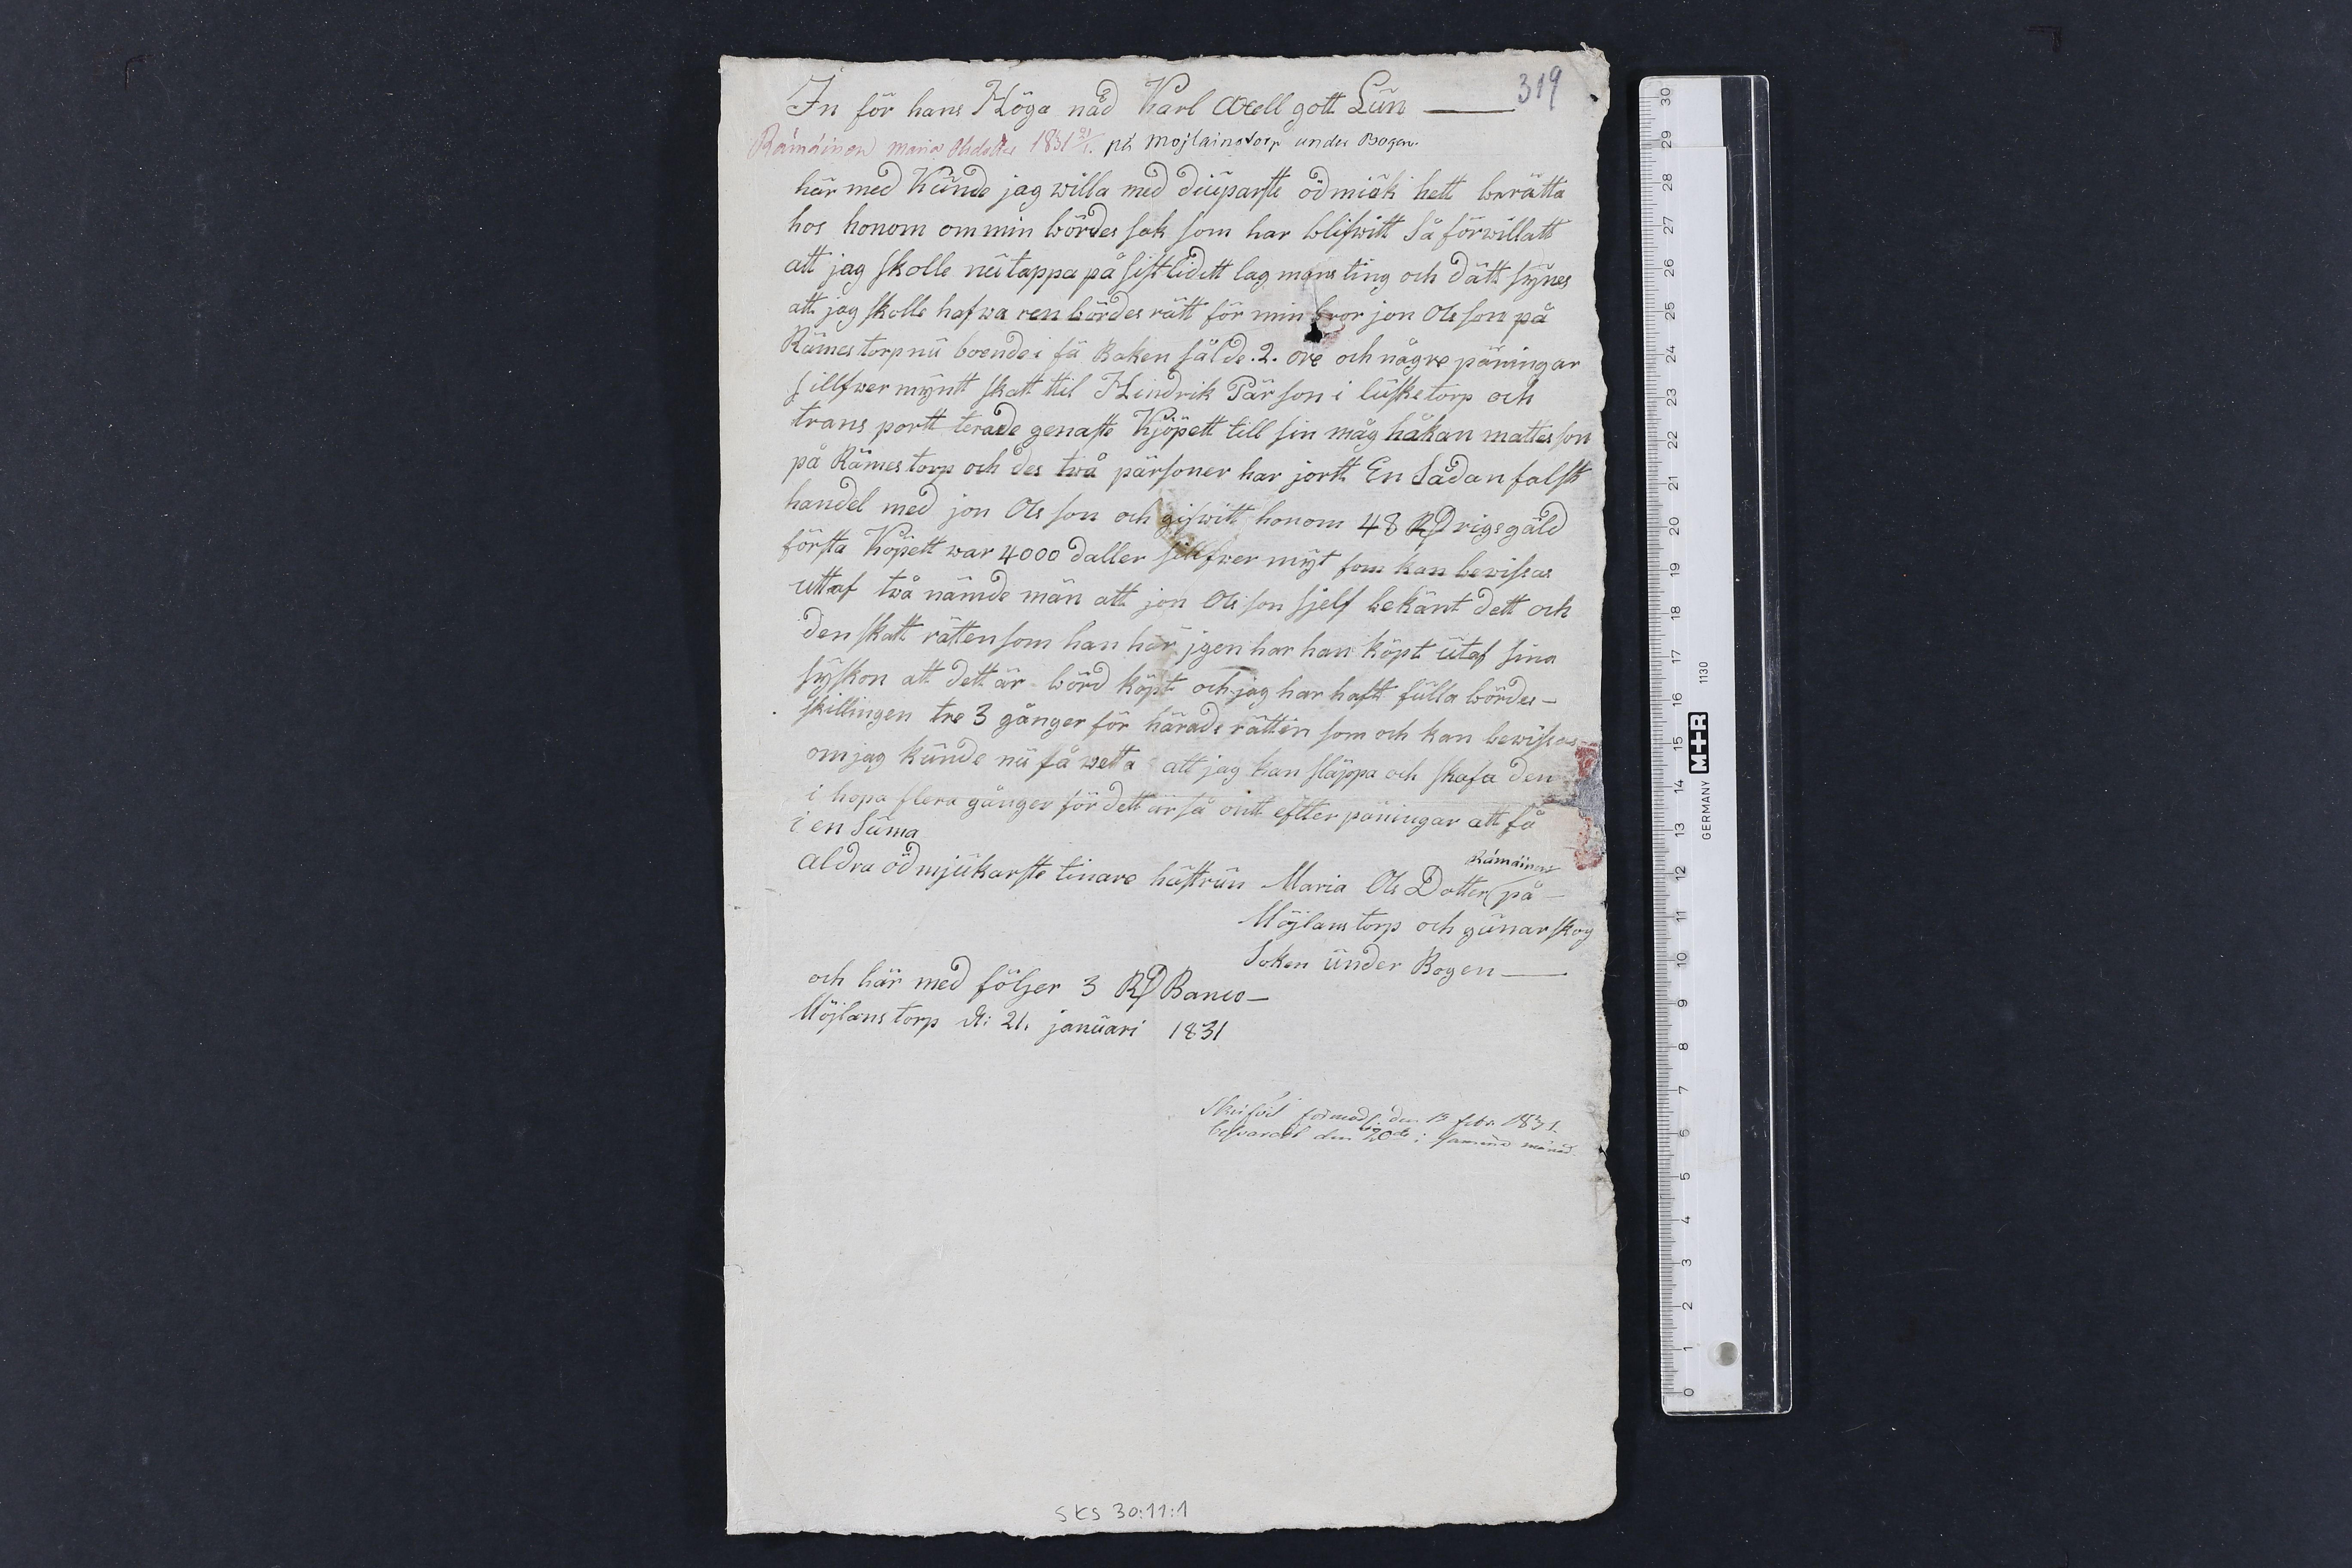 319
In för hans Höga nåd Karl Axell gott Lün
Rämäinen Maria Olsdotter 1831 21/1. på Mojlainstorp under Bogen.
här med Künde jag willa med diüparste ödmiük hett berätta
hos honom om min bördes sak som har blifwitt så förwillatt
att jag skolle nü tappa på sist lidett lag mans ting och dätt synes
att jag skolle hafwa ren bördes rätt för min bror jon Olsson på
Rämes torp nü boende i fä Baken sålde .2. öre och någre päningar
sillfwer myntt skatt till Hindrik Pärson i lüsketorp och
trans portt terade genaste Kjöpett till sin måg håkan mattesson
på Rämes torp och des två pärsoner har jortt En Sådan falsk
handel med jon Olsson och gifwitt honom 48 RD rigsgäld
första Köpett war 4000 daller sillfwer mynt som kan bewissas
uttaf två nämde män att jon Olsson sjelf bekänt dett och
den skatt rätten som han har jgen har han köpt ütaf sina
syskon att dett är börd köpt och jag har haft fülla bördes-
skillingen tre 3 gånger för härads rätten som och kan bewissas
om jag künde nü få wetta att jag kan släppa och skafa den
i hopa flera gånger för dett är så ont efter päningar att få
i en Süma
aldra ödmjükarste tinare hüstrün Maria Ols Dotter (på
Rämäinen
Möjlans torp och günarskog
Soken ünder Bogen
och här med följer 3 RD Banco
Möjlans torp d: 21. janüari 1831
den 13 febr. 1831
besvarat den 20de i samma månad.
SKS 30:11:1
0 1 2 3 4 5 6 7 8 9 10 11 12 13 14 15 16 17 18 19 20 21 22 23 24 25 26 27 28 29 30
GERMANY M+R 1130